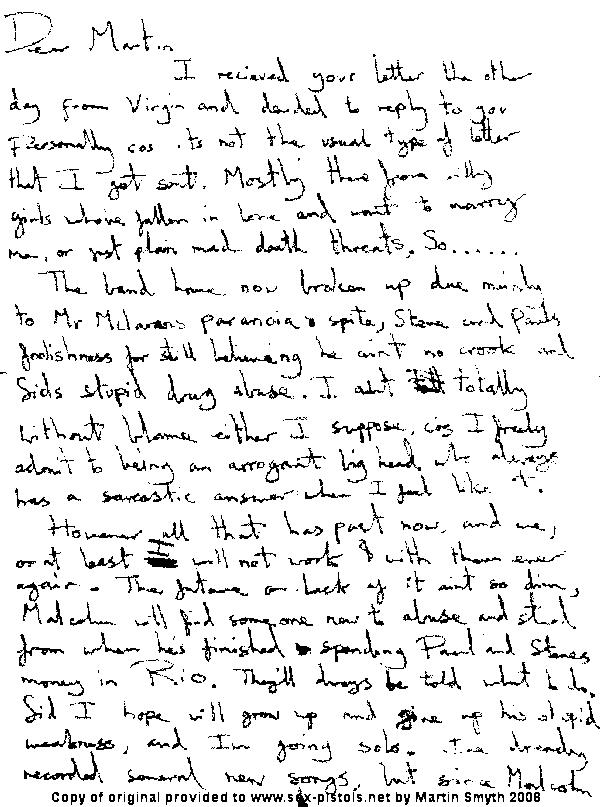 Dear Martin
I recieved your letter the other
day from Virgin and decided to reply to you
personally cos its not the usual type of letter
that I get sent. Mostly there from silly
girls whove fallen in love and want to marry
me, or just plain mad death threats. So......
The band have now broken up due mainly
to Mr Mclarens paranoia & spite, Steve and Pauls
foolishness for still believeing he ain't no crook and
Sids stupid drug abuse. I aint totally
without blame either I suppose, cos I freely
admit to being an arrogant big head who always
has a sarcastic answer when I feel like it.
However all that has past now, and we,
or at least I will not work with them ever
again. The future or lack of it aint so dim,
Malcolm will find someone new to abuse and steal
from when he's finished spending Paul and Steves
money in Rio. They'll always be told what to do.
Sid I hope will grow up and give up his stupid
weakness, and I'm going solo. I've already
recorded several new songs, but since Malcolm
Copy of original provided to www.sex-pistols.net by Martin Smyth 2008